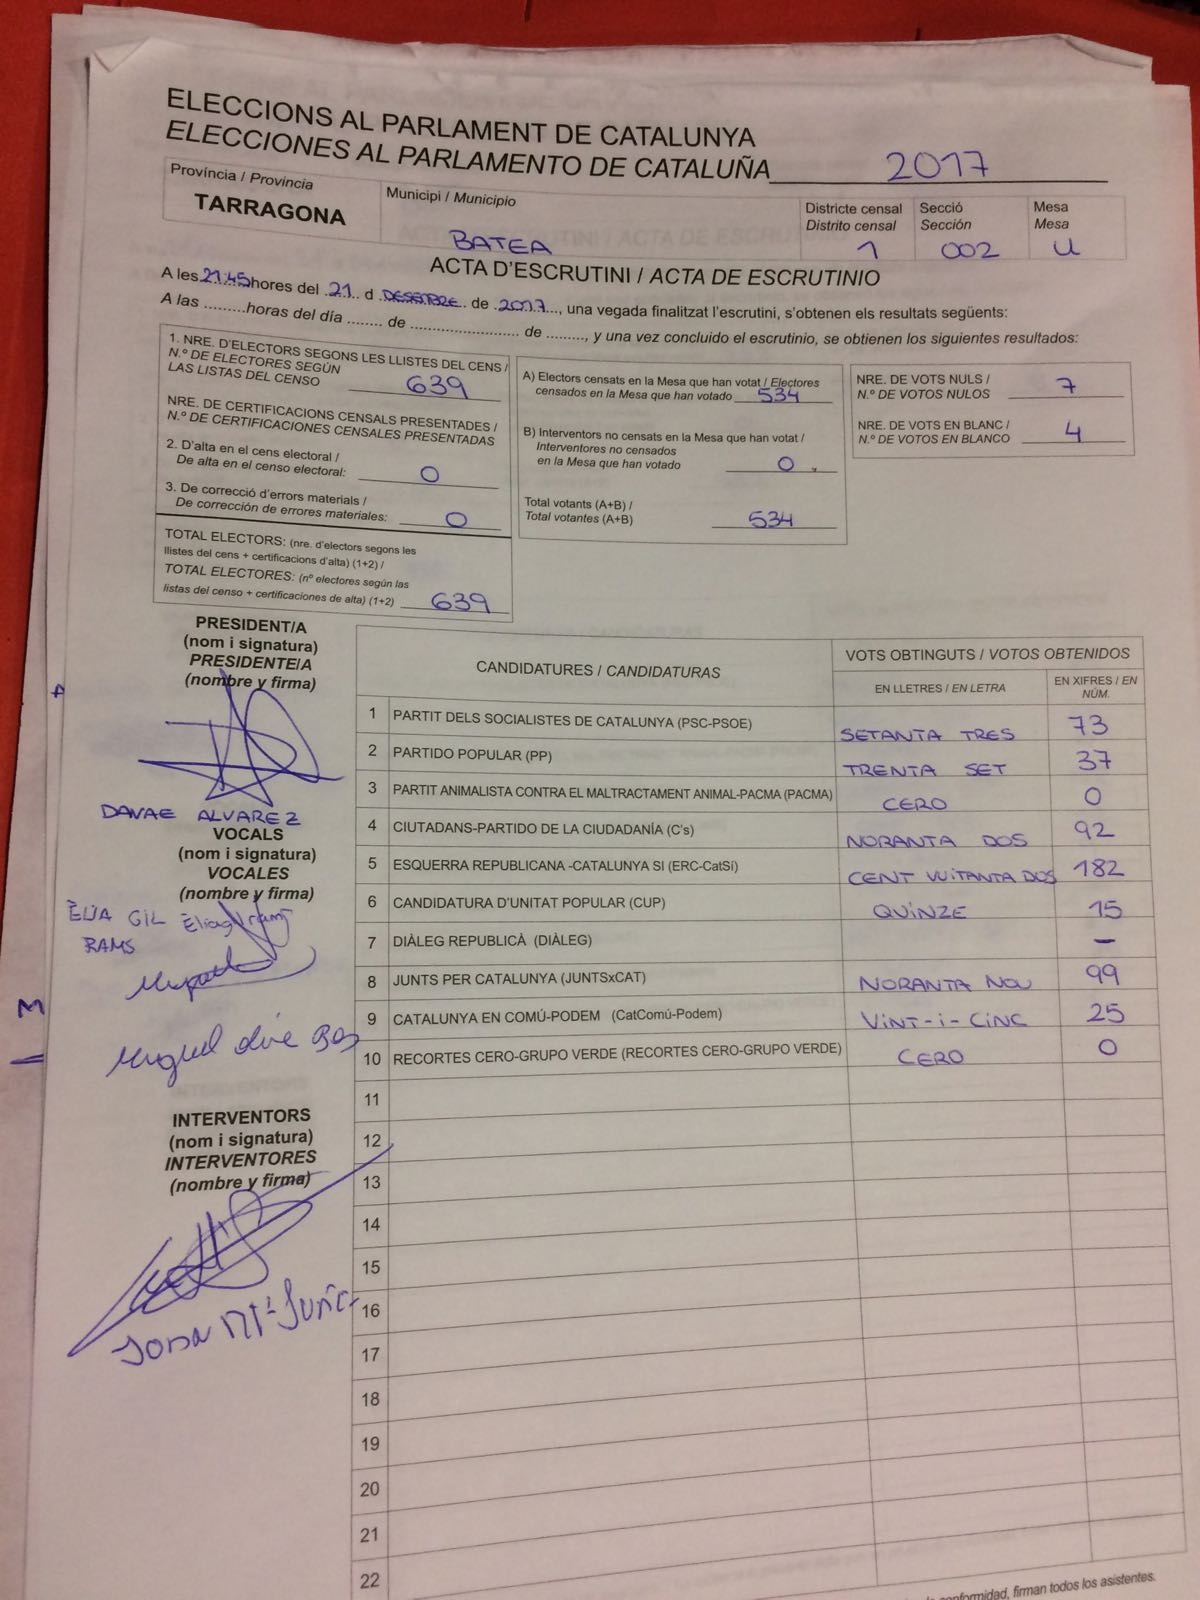 ELECCIONS AL PARLAMENT DE CATALUNYA
ELECCIONES AL PARLAMENTO DE CATALUÑA 2017
Província / Provincia
TARRAGONA
Municipi / Municipio
BATEA
Districte censal
Distrito censal
1
Secció
Sección
002
Mesa
Mesa
U
ACTA D'ESCRUTINI / ACTA DE ESCRUTINIO
A les 21:45 hores del 21 d DESEMBRE de 2017, una vegada finalitzat l'escrutini, s'obtenen els resultats següents:
A las .........horas del día ........ de ........................ de ........., y una vez concluido el escrutinio, se obtienen los siguientes resultados:
1. NRE. D'ELECTORS SEGONS LES LLISTES DEL CENS /
N.º DE ELECTORES SEGÚN
LAS LISTAS DEL CENSO 639
NRE. DE CERTIFICACIONS CENSALS PRESENTADES /
N.º DE CERTIFICACIONES CENSALES PRESENTADAS
2. D'alta en el cens electoral /
De alta en el censo electoral: 0
3. De correcció d'errors materials /
De corrección de errores materiales: 0
TOTAL ELECTORS: (nre. d'electors segons les
llistes del cens + certificacions d'alta) (1+2) /
TOTAL ELECTORES: (nº electores según las
listas del censo + certificaciones de alta) (1+2) 639
A) Electors censats en la Mesa que han votat / Electores
censados en la Mesa que han votado 534
B) Interventors no censats en la Mesa que han votat /
Interventores no censados
en la Mesa que han votado 0
Total votants (A+B) /
Total votantes (A+B) 534
NRE. DE VOTS NULS /
N.º DE VOTOS NULOS 7
NRE. DE VOTS EN BLANC /
N.º DE VOTOS EN BLANCO 4
PRESIDENT/A
(nom i signatura)
PRESIDENTE/A
(nombre y firma)
DANAE ALVAREZ
VOCALS
(nom i signatura)
VOCALES
(nombre y firma)
ÈLIA GIL
RAMS
Miguel
INTERVENTORS
(nom i signatura)
INTERVENTORES
(nombre y firma)
CANDIDATURES / CANDIDATURAS
VOTS OBTINGUTS / VOTOS OBTENIDOS
EN LLETRES / EN LETRA
EN XIFRES / EN NÚM.
1 PARTIT DELS SOCIALISTES DE CATALUNYA (PSC-PSOE) SETANTA TRES 73
2 PARTIDO POPULAR (PP) TRENTA SET 37
3 PARTIT ANIMALISTA CONTRA EL MALTRACTAMENT ANIMAL-PACMA (PACMA) CERO 0
4 CIUTADANS-PARTIDO DE LA CIUDADANÍA (C's) NORANTA DOS 92
5 ESQUERRA REPUBLICANA -CATALUNYA SI (ERC-CatSí) CENT VUITANTA DOS 182
6 CANDIDATURA D'UNITAT POPULAR (CUP) QUINZE 15
7 DIÀLEG REPUBLICÀ (DIÀLEG) –
8 JUNTS PER CATALUNYA (JUNTSxCAT) NORANTA NOU 99
9 CATALUNYA EN COMÚ-PODEM (CatComú-Podem) VINT-I-CINC 25
10 RECORTES CERO-GRUPO VERDE (RECORTES CERO-GRUPO VERDE) CERO 0
11
12
13
14
15
16
17
18
19
20
21
22
conformidad, firman todos los asistentes.